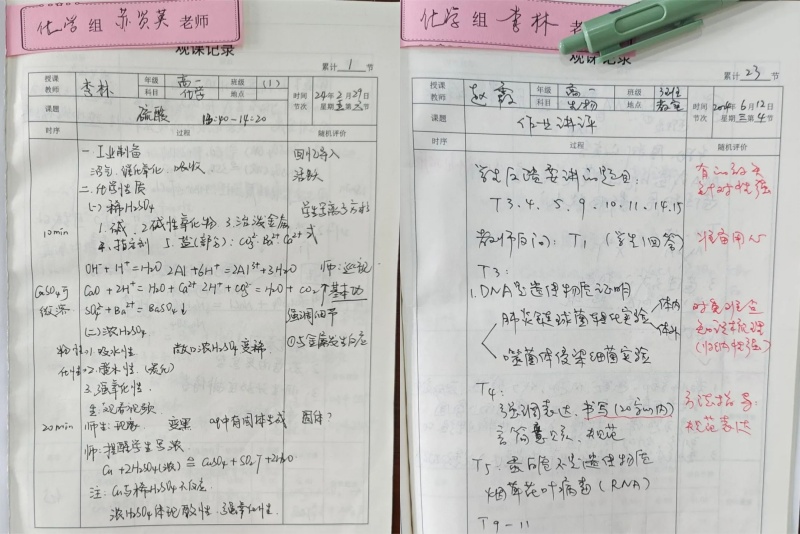 化学 组 苏贤英 老师
观课记录
累计 1 节
授课教师 李林 年级 高一 班级 (1) 时间 24年2月29日
科目 化学 地点 节次 星期
课题 硫酸 13:40-14:20
时序 过程 随机评价
一.工业制备 回忆导入
催化氧化 吸收
二.化学性质
(一)稀H₂SO₄ 学生写离子方程式
10min 1.碱 2.碱性氧化物 3.活泼金属
4.指示剂 5.盐(部分):CO₃²⁻ Ba²⁺
OH⁻+H⁺=H₂O 2Al+6H⁺=2Al³⁺+3H₂ 师:巡视
CaO+2H⁺=H₂O+Ca²⁺ 2H⁺+CO₃²⁻=H₂O+CO₂↑ 基本功
SO₄²⁻+Ba²⁺=BaSO₄↓ 强调细节
CaSO₄可微溶
(二)浓H₂SO₄
物性:1.吸水性 敞口浓H₂SO₄变稀 ①与金属发生反应
化性:2.脱水性(炭化)
3.强氧化性
生:观看视频
20min 师生:现象 变黑 中有固体生成 固体?
师:提醒学生写浓
Cu+2H₂SO₄(浓)≜CuSO₄+SO₂↑+2H₂O
注:Cu与稀H₂SO₄不反应
浓H₂SO₄体现酸性、强氧化性.
化学组 李林 老师
观课记录
累计 23 节
授课教师 赵霞 年级 高一 班级
科目 生物 地点 教室
时间 2024年6月12日
节次 星期三第4节
课题 作业讲评
时序 过程 随机评价
学生反馈要讲的题目: 有的放矢
T3.4.5.9.10.11.14.15 针对性强
教师反问:T1(学生1回答) 准备用心
T3:
1.DNA是遗传物质证明
肺炎链球菌转化实验 体内
体外
噬菌体侵染细菌实验
知识梳理
(归纳性强)
T4:
强调表达、书写(20字以内) 方法指导:
言简意赅、规范 规范表达
T5:蛋白质不是遗传物质
烟草花叶病毒(RNA)
T9-11